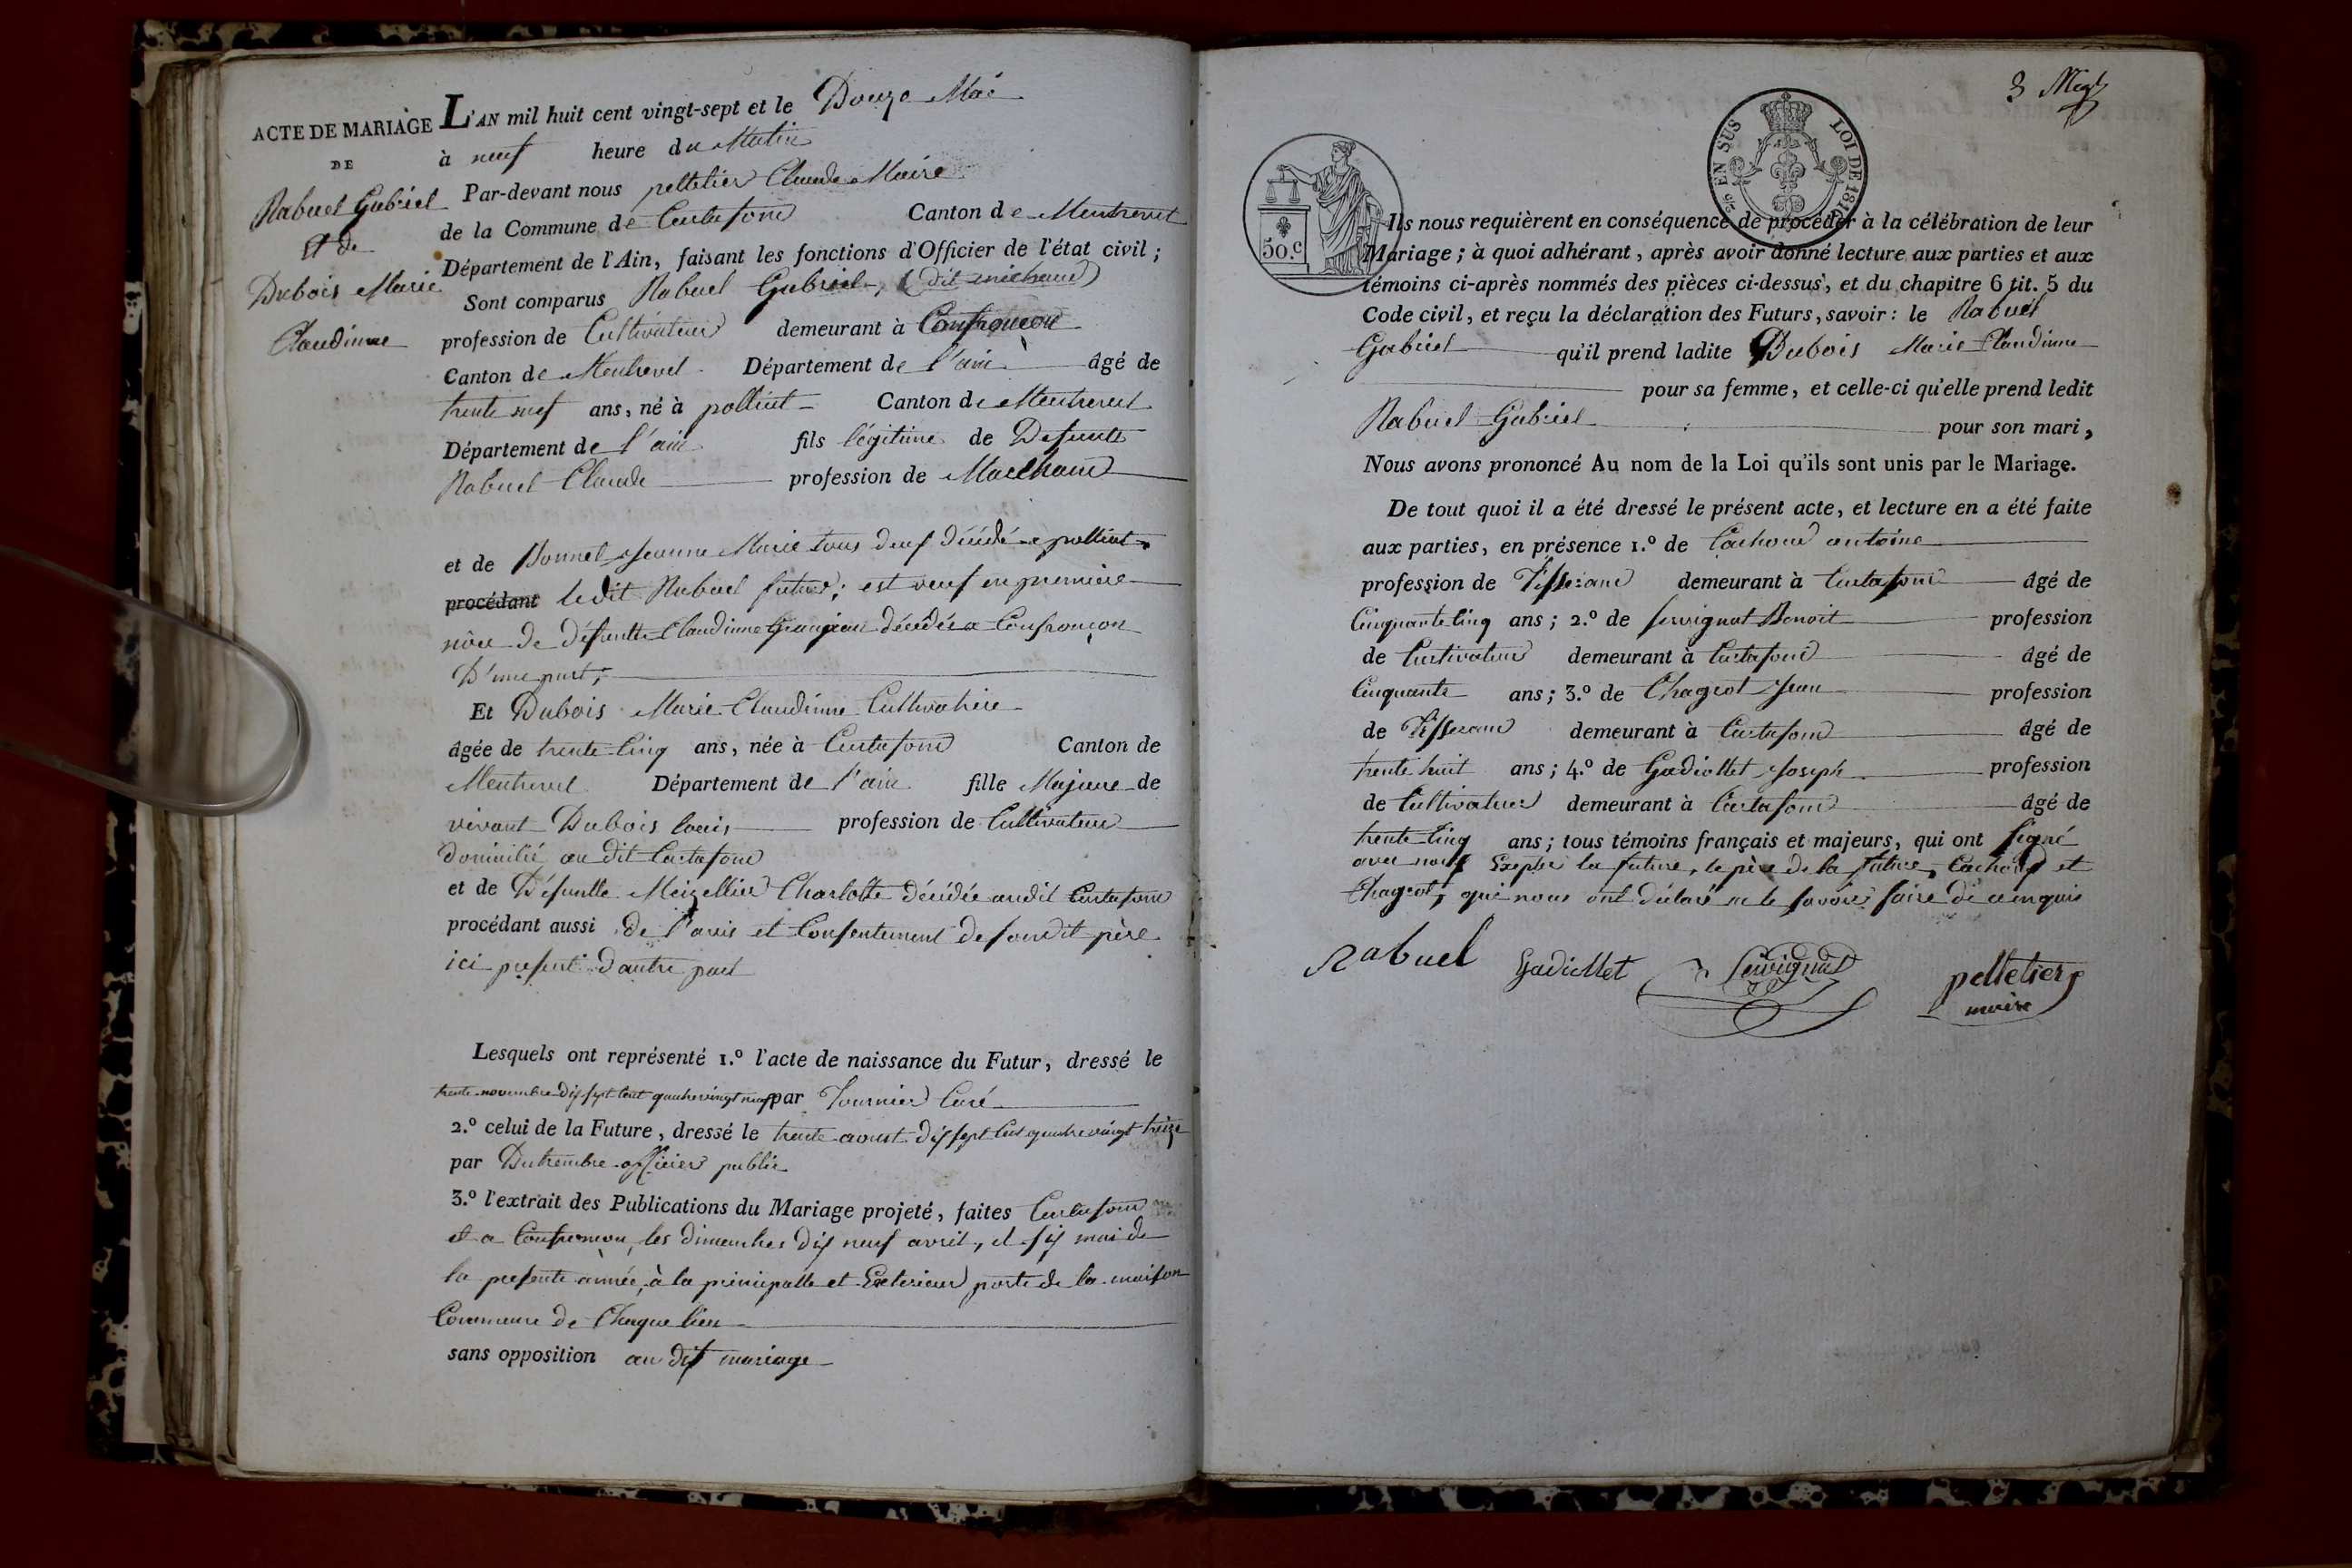 ACTE DE MARIAGE
DE
Rabuel Gabriel
Et de
Dubois Marie
Claudinne
L'AN mil huit cent vingt-sept et le Douze Mai
à neuf heure du Matin
Par-devant nous pelletier Claude Maire
de la Commune de Curtafond Canton de Montrevel
Département de l'Ain, faisant les fonctions d'Officier de l'état civil ;
Sont comparus Rabuel Gabriel, (dit michaud)
profession de Cultivateur demeurant à Confrançon
Canton de Montrevel Département de l'ain âgé de
trente neuf ans, né à polliat Canton de Montrevel
Département de l'ain fils légitime de Defunts
Rabuel Claude profession de Marchand
et de Bonnet Jeanne Marie tous deux décédé a polliat
procédant ledit Rabuel futur; est veuf en première
nôce de défuntte Claudinne Grangean décédée a Confrançon
D'une part;
Et Dubois Marie Claudinne Cultivatrice
âgée de trente Cinq ans, née à Curtafond Canton de
Montrevel Département de l'ain fille Majeure de
vivant Dubois louis profession de Cultivateur
domicilié au dit Curtafond
et de Défuntte Meizellier Charlotte décédée audit Curtafond
procédant aussi de l'avis et Consentement de sondit père
ici présent d'autre part
Lesquels ont représenté 1.º l'acte de naissance du Futur, dressé le
trente novembre dix sept cent quatrevingt neuf par Tournier Curé
2.º celui de la Future, dressé le trente avoust dix sept cent quatre vingt treize
par Dutrembre officier public
3.º l'extrait des Publications du Mariage projeté, faites Curtafond
et a Confrançon, les dimanches dix neuf avril, et six mai de
la presente année, à la principalle et Exterieur porte de la maison
Commune de Chaque lieu
sans opposition au dit mariage
3 Meg
EN SUS
LOI DE 1816
50.c
Ils nous requièrent en conséquence de procéder à la célébration de leur
Mariage ; à quoi adhérant, après avoir donné lecture aux parties et aux
témoins ci-après nommés des pièces ci-dessus, et du chapitre 6 tit. 5 du
Code civil, et reçu la déclaration des Futurs, savoir : le Rabuel
Gabriel qu'il prend ladite Dubois Marie Claudinne
pour sa femme, et celle-ci qu'elle prend ledit
Rabuel Gabriel pour son mari,
Nous avons prononcé Au nom de la Loi qu'ils sont unis par le Mariage.
De tout quoi il a été dressé le présent acte, et lecture en a été faite
aux parties, en présence 1.º de Cachoud antoine
profession de Tisserand demeurant à Curtafond âgé de
Cinquante Cinq ans ; 2.º de Servignat Benoit profession
de Cultivateur demeurant à Curtafond âgé de
Cinquante ans ; 3.º de Chageot Jean profession
de Tisserand demeurant à Curtafond âgé de
trente huit ans ; 4.º de Gadiollet Joseph profession
de Cultivateur demeurant à Curtafond âgé de
trente Cinq ans ; tous témoins français et majeurs, qui ont signé
avec nous Exepter la future, le père de la future, Cachoud et
Chageot, qui nous ont déclaré ne le savoir faire de ce enquis
Rabuel Gadiollet Servignat pelletier
maire